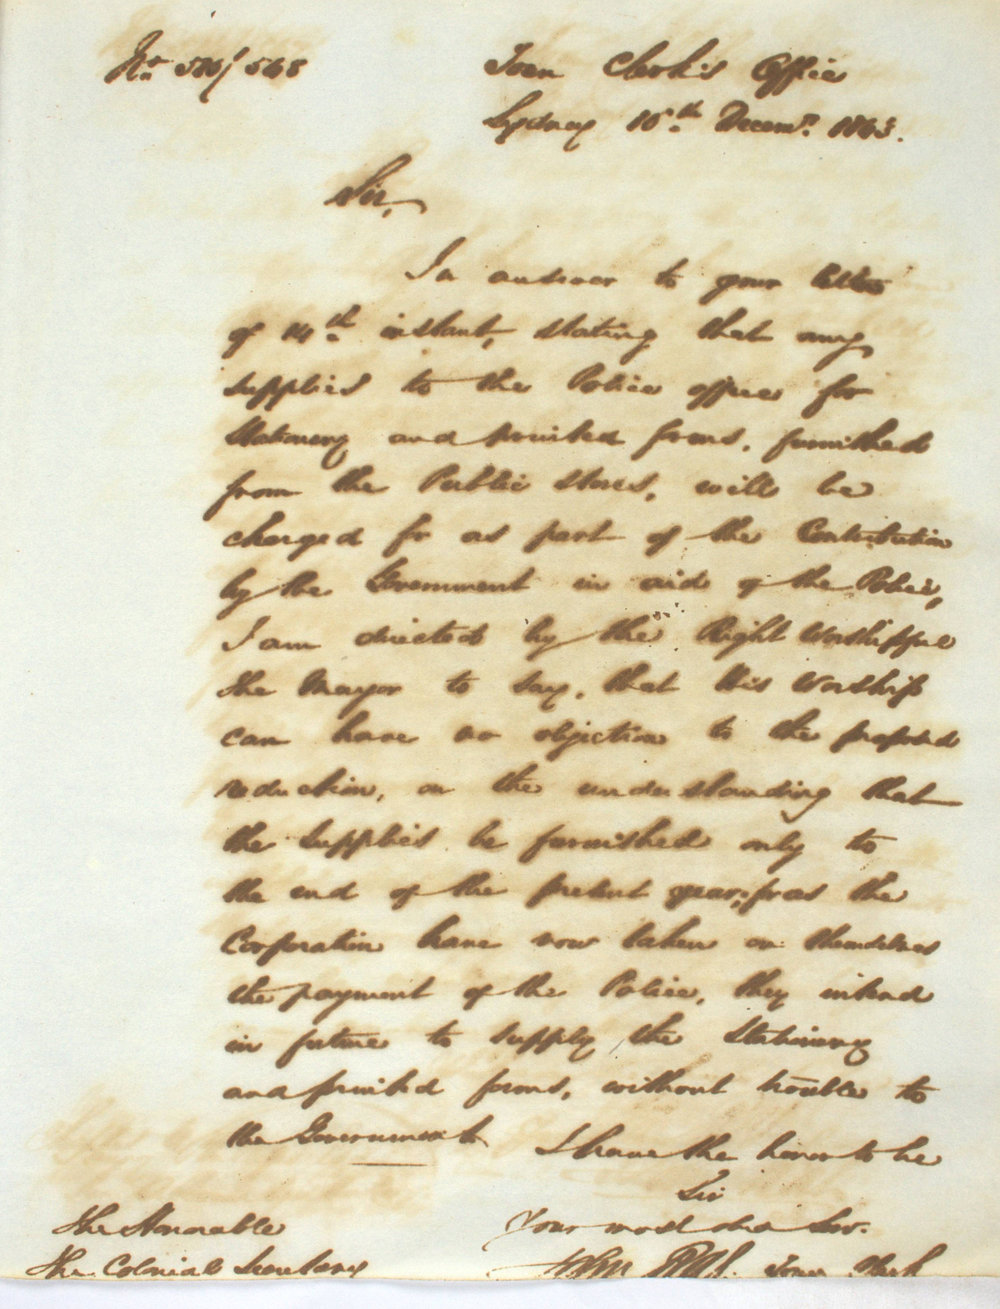 No 510/548
Town Clerk's Office
Sydney 16th Decemr. 1863.
Sir,
In answer to your letter
of 14th instant, stating that any
supplies to the Police office for
Stationery and printed forms, furnished
from the Public Stores, will be
charged for as part of the Contribution
by the Government in aid of the Police,
I am directed by the Right Worshipful
the Mayor to say, that His Worship
can have no objection to the proposed
reduction, on the understanding that
the supplies be furnished only to
the end of the present year; for as the
Corporation have now taken on themselves
the payment of the Police, they intend
in future to supply the Stationery
and printed forms, without trouble to
the Government.
I have the honor to be
Sir
Your most obed Serv.
The Honorable
The Colonial Secretary
Town Clerk